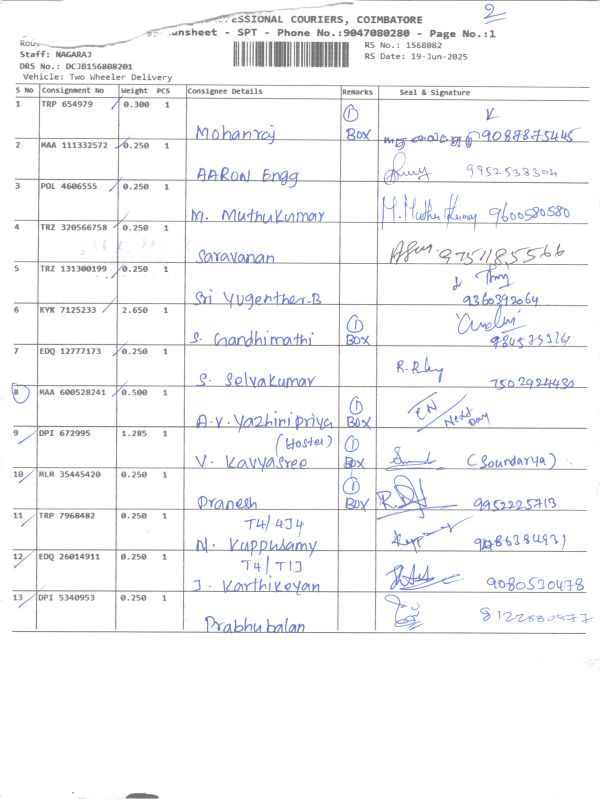 ESSIONAL COURIERS, COIMBATORE 2
unsheet - SPT - Phone No.:9047080280 - Page No.:1
Staff: NAGARAJ RS No.: 1568082
DRS No.: DCJB156808201 RS Date: 19-Jun-2025
Vehicle: Two Wheeler Delivery
S No Consignment No Weight PCS Consignee Details Remarks Seal & Signature
1 TRP 654979 0.300 1 Mohanraj 1 BOX 9087875445
2 MAA 111332572 0.250 1 AARON Engg 9952538304
3 POL 4606555 0.250 1 M. Muthukumar M. Muthu Kumar 9600580580
4 TRZ 320566758 0.250 1 Saravanan 9751185566
5 TRZ 131300199 0.250 1 Sri Yugenther.B 9360392064
6 KYK 7125233 2.650 1 S. Gandhimathi 1 BOX
7 EDQ 12777173 0.250 1 S. Selvakumar 7502924430
8 MAA 600528241 0.500 1 A.V. Yazhini Priya 1 BOX CN / Next Day
(Hostel)
9 DPI 672995 1.285 1 V. Kavyasree 1 BOX (Soundarya)
10 MLM 35445420 0.250 1 Pranesh 1 BOX 9952225713
T4/4J4
11 TRP 7968482 0.250 1 N. Kuppusamy
T4/T1J
12 EDQ 26014911 0.250 1 J. Karthikeyan 9080530478
13 DPI 5340953 0.250 1 Prabhubalan